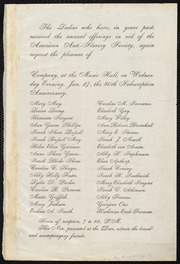 The Ladies who have, in years past,
received the annual offerings in aid of the
American Anti-Slavery Society, again
request the pleasure of
Company, at the Music Hall, on Wednes-
day Evening, Jan. 27, the 30th Subscription
Anniversary.
Mary May
Louisa Loring
Henrietta Sargent
Ann Greene Phillips
Sarah Shaw Russell
Frances Mary Robbins
Helen Eliza Garrison
Anna Shaw Greene
Sarah Blake Shaw
Caroline C. Thayer
Abby Kelley Foster
Lydia D. Parker
Augusta G. King
Mattie Griffith
Mary Jackson
Evelina A. Smith
Caroline M. Severance
Elizabeth Gay
Mary Willey
Ann Rebecca Bramhall
Mary E. Stearns
Sarah J. Nowell
Elizabeth von Arnim
Abby H. Stephenson
Eliza Apthorp
Sarah Cowing
Sarah H. Southwick
Mary Elizabeth Sargent
Sarah C. Atkinson
Abby Francis
Georgina Otis
Katherine Earle Farnum
Hours of reception, 7 to 10, P.M.
This Note, presented at the Door, admits the bearer
and accompanying friends.